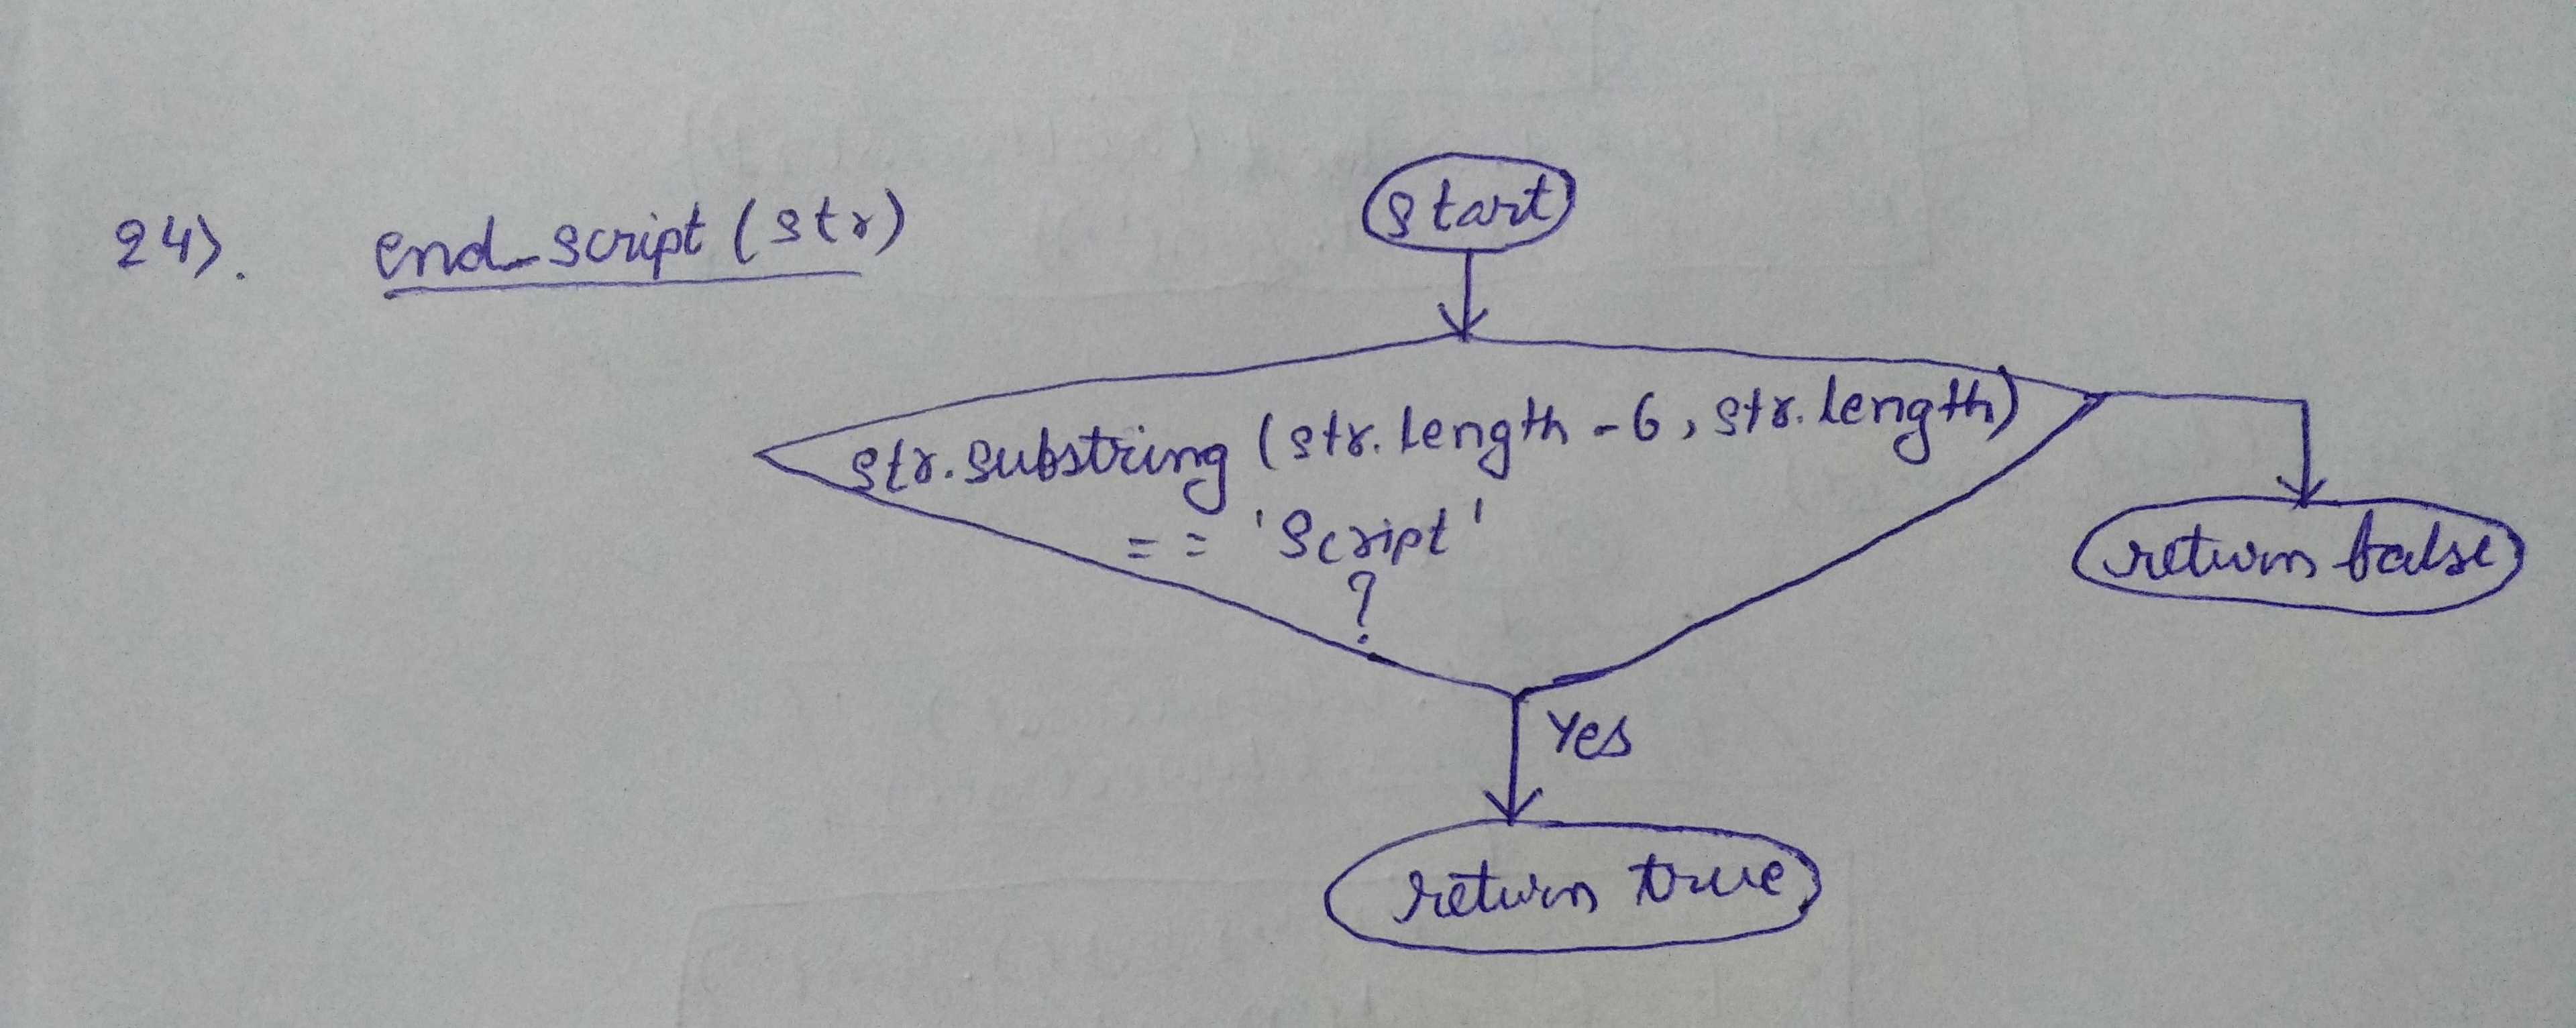 24). end_script (str)
start
str.substring (str.length - 6, str.length)
== 'Script'
?
return false
Yes
return true